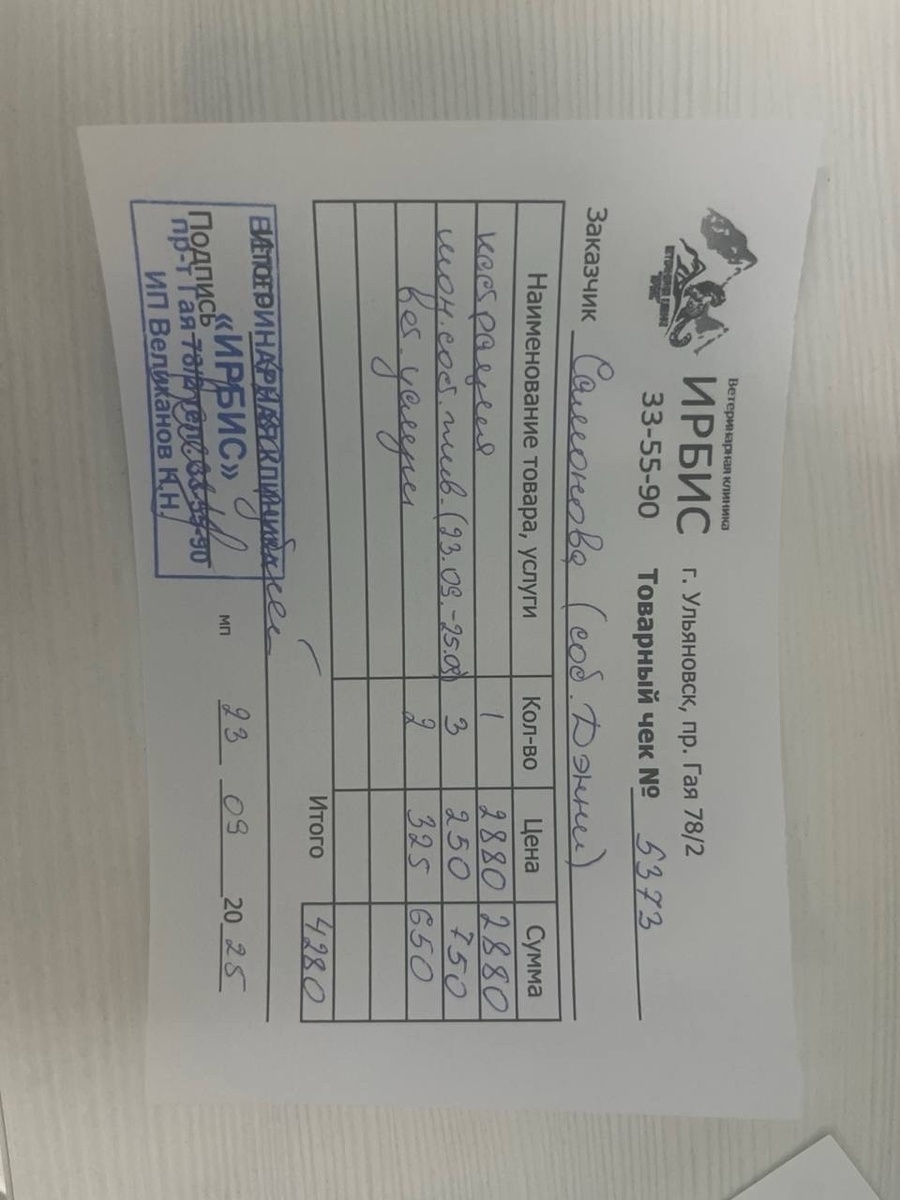 Ветеринарная клиника
ИРБИС г. Ульяновск, пр. Гая 78/2
33-55-90 Товарный чек № 5373
Заказчик (соб. Дэнни)
Наименование товара, услуги Кол-во Цена Сумма
кастрация 1 2880 2880
(23.09.-25.09) 3 250 750
вет. услуги 2 325 650
Итого 4280
ВЕТЕРИНАРНАЯ КЛИНИКА
«ИРБИС»
Подпись
пр-т Гая 78/2 тел. 33-55-90
ИП Великанов К.Н.
мп 23 09 2025